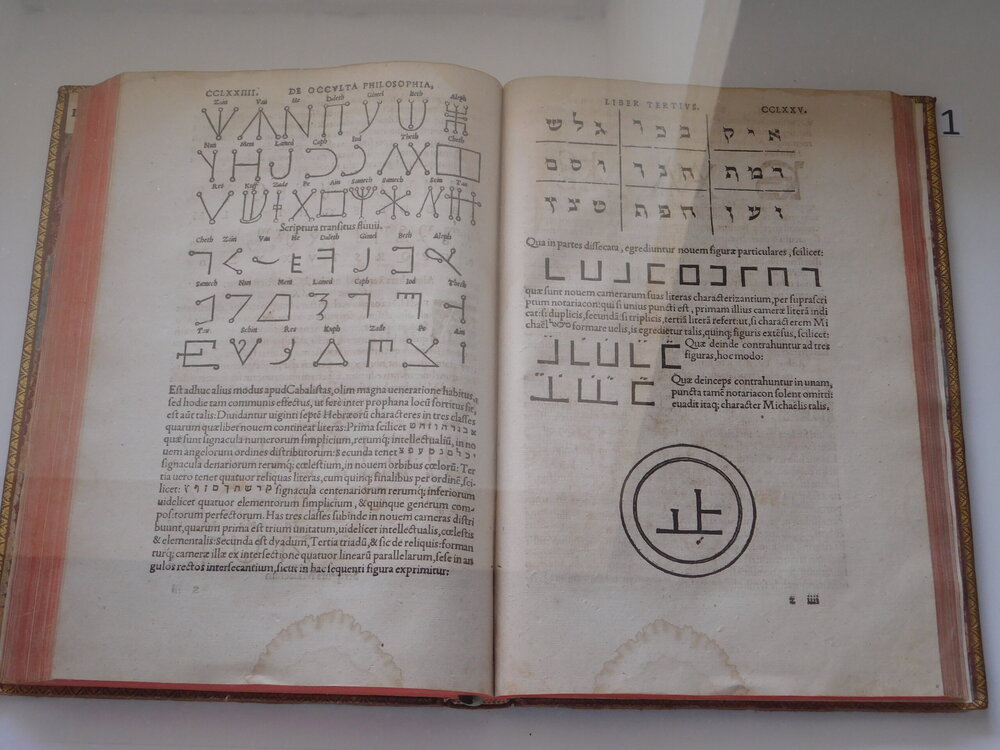 CCLXXIIII. DE OCCVLTA PHILOSOPHIA,
Zain Vau He Daleth Gimel Beth Aleph
Nun Mem Lamed Caph Iod Theth Cheth
Res Kuff Zade Pe Ain Samech Samech Sein Tau
Scriptura transitus fluuii.
Cheth Zain Vau He Daleth Gimel Beth Aleph
Samech Nun Mem Lamed Caph Iod Theth
Tau Schin Res Kuph Zade Pe Ain
Est adhuc alius modus apud Cabalistas, olim magna ueneratione habitus,
sed hodie tam communis effectus, ut fere inter prophana locū sortitus sit,
est aūt talis: Diuidantur uiginti septē Hebræorū characteres in tres classes
quarum quælibet nouem contineat literas: Prima scilicet אבגדהוזחט
quæ sunt signacula numerorum simplicium, rerumq; intellectualiū, in no
uem angelorum ordines distributorum: Secunda tenet יכלמנסעפצ
signacula denariorum rerumq; cœlestium, in nouem orbibus cœlorū: Ter
tia uero tenet quatuor reliquas literas, cum quinq; finalibus per ordinē, sci-
licet: קרשתךםןףץ signacula centenariorum rerumq; inferiorum
uidelicet quatuor elementorum simplicium, & quinque generum com-
positorum perfectorum. Has tres classes subinde in nouem cameras distri
buunt, quarum prima est trium unitatum, uidelicet intellectualis, cœlestis
& elementalis: Secunda est dyadum, Tertia triadū, & sic de reliquis: forman
turq; cameræ illæ ex intersectione quatuor linearū parallelarum, sese in an
gulos rectos intersecantium, sicut in hac sequenti figura exprimitur:
LIBER TERTIVS. CCLXXV.
גלש בכר איק
וסם הנך דמת
טצץ חפף זען
Qua in partes dissecata, egrediuntur nouem figuræ particulares, scilicet:
quæ sunt nouem camerarum suas literas characterizantium, per suprascri
ptum notariacon: qui si unius puncti est, primam illius cameræ literā indi
cat: si duplicis, secundā: si triplicis, tertiā literā refert: ut, si characterem Mi
chaël מיכאל formare uelis, is egredietur talis, quinq; figuris extēsus, scilicet:
Quæ deinde contrahuntur ad tres
figuras, hoc modo:
Quæ deinceps contrahuntur in unam,
puncta tamē notariacon solent omitti:
euadit itaq; character Michaëlis talis,
z iiii
1